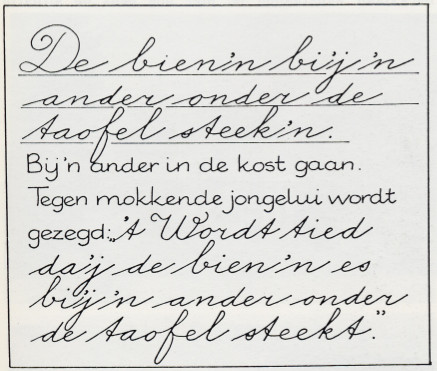 De bien'n bi'j'n
ander onder de
taofel steek'n.
Bij'n ander in de kost gaan.
Tegen mokkende jongelui wordt
gezegd: „'t Wordt tied
da'j de bien'n es
bi'j'n ander onder
de taofel steekt.”